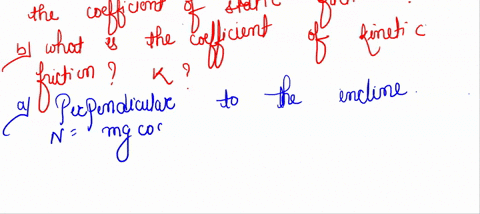 the coefficient of static
b) what is the coefficient of kinetic
friction? K?
a) Perpendicular to the encline.
N = mg co